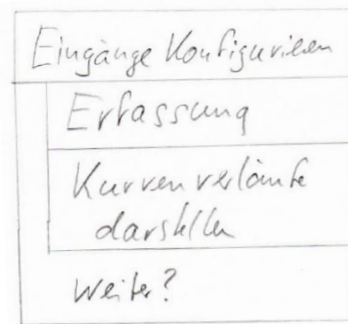 Eingänge Konfigurieren
Erfassung
Kurvenverläufe
darstellen
weiter?